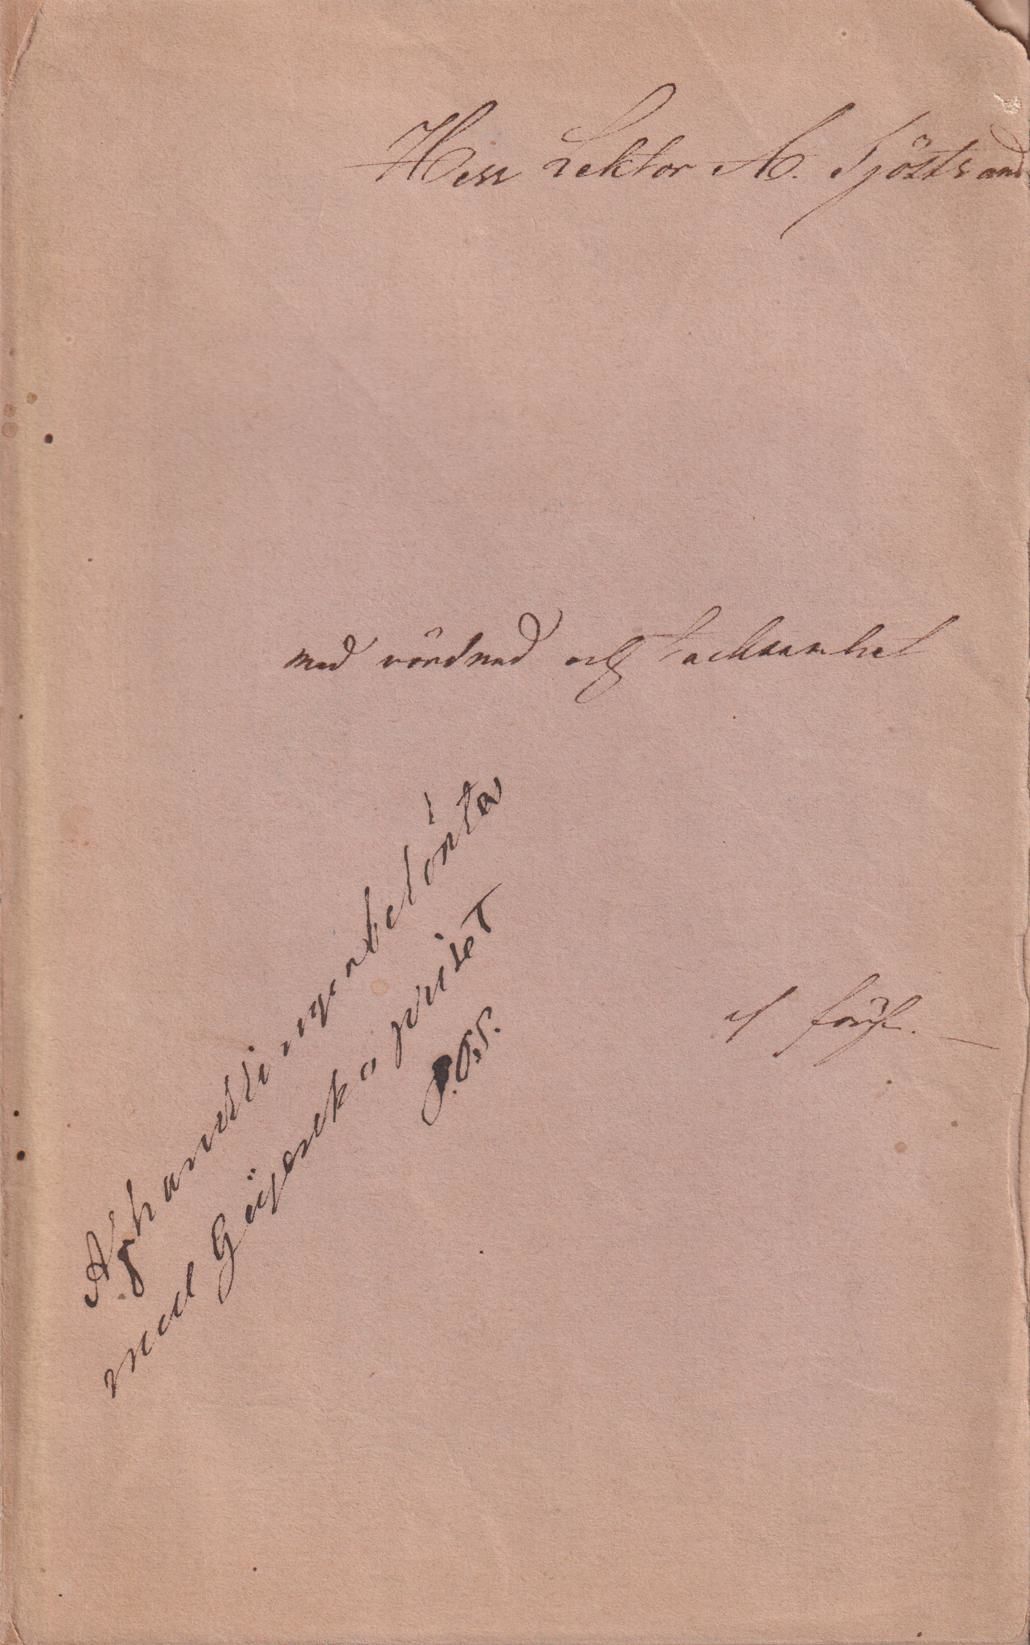 Herr Lektor A. Sjöstrand
med vördnad och tacksamhet
af förf.
Afhandlingen belönta
med Geijerska priset